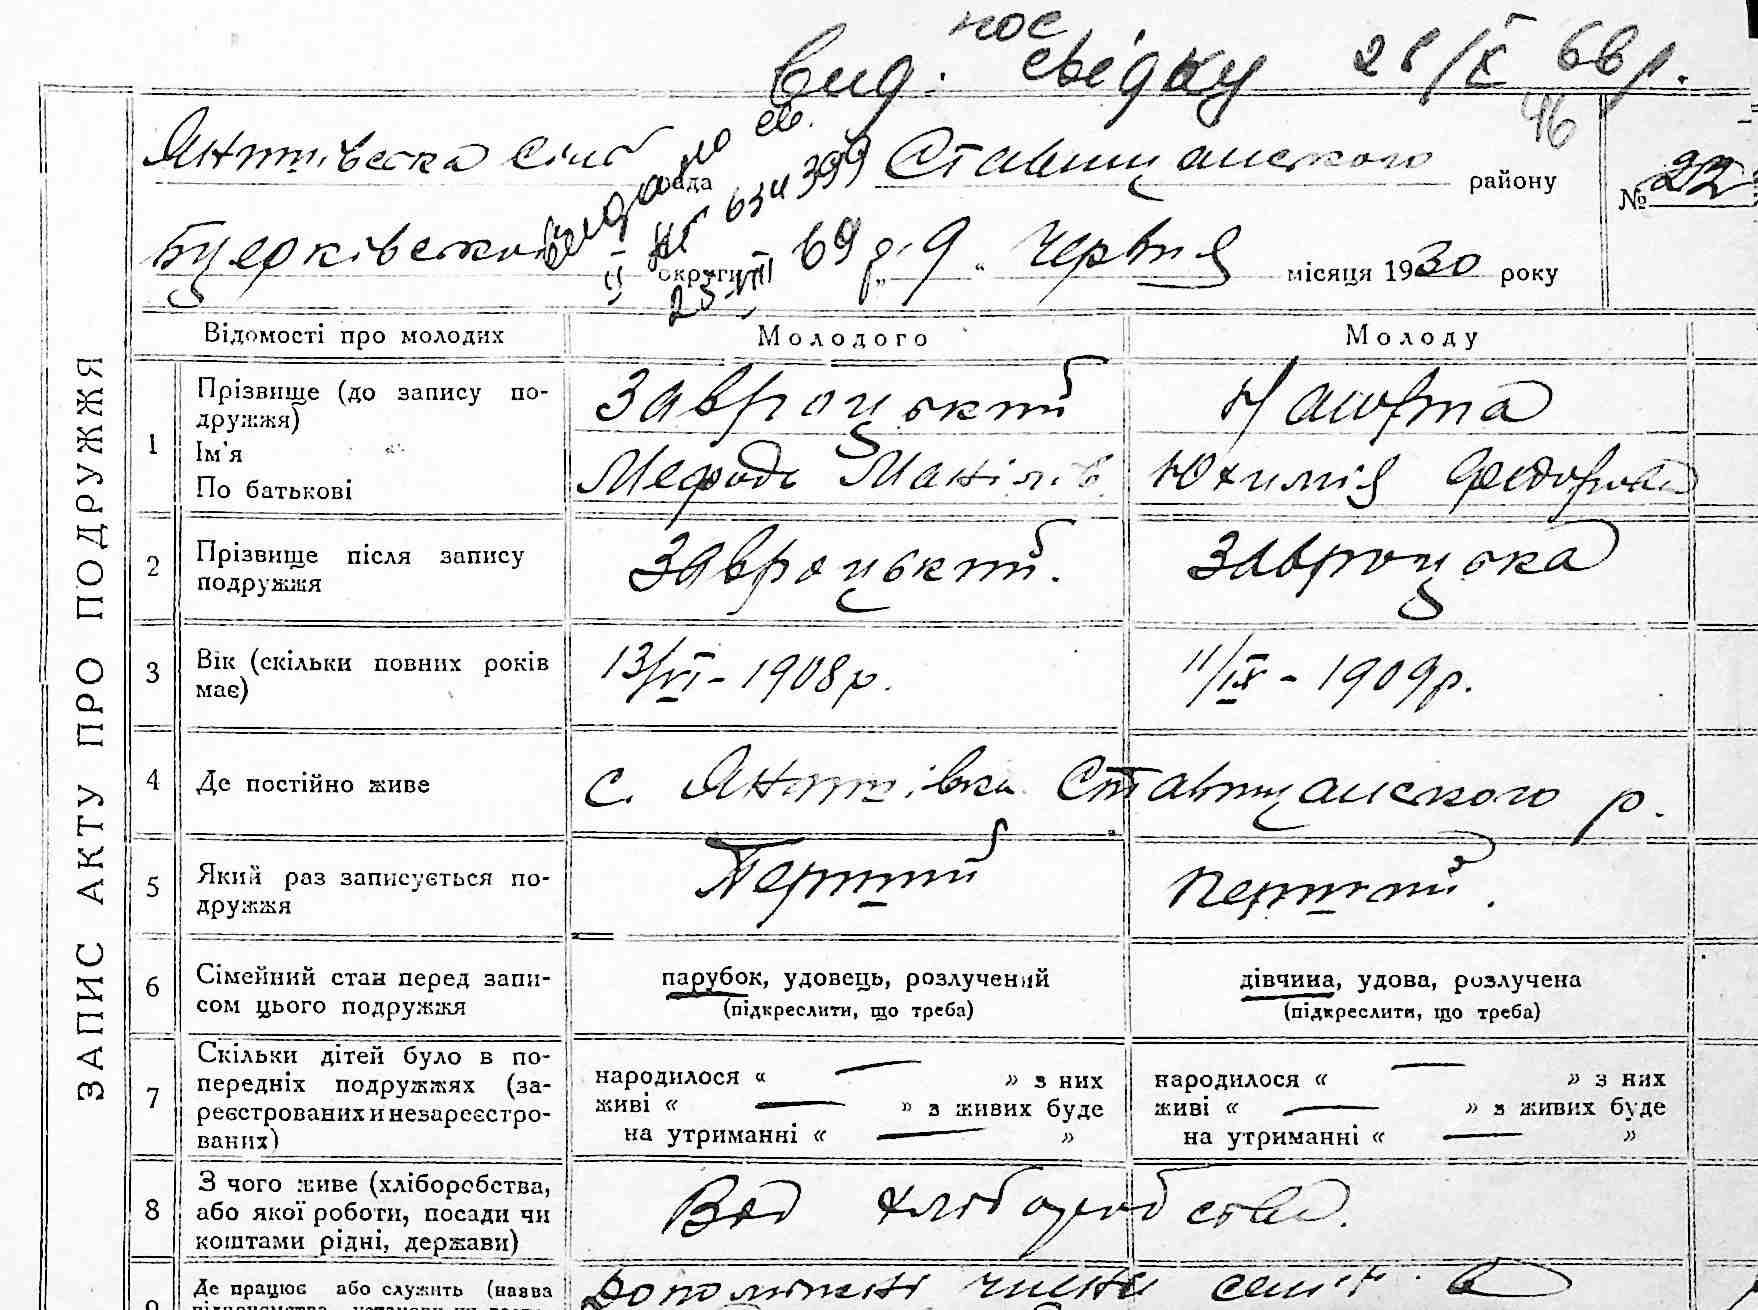 вид. свідку 28/X 66 р.
46
Янишівська сільрада Ставищанського району № 22
Бцерківської округи „9“ Червня місяця 1930 року
Видано св.
634399
23 VIII 69 р.
ЗАПИС АКТУ ПРО ПОДРУЖЖЯ
Відомості про молодих Молодого Молоду
1 Прізвище (до запису по-
дружжя) Завроцький
Ім'я
По батькові Мефодь Юхимія Федоровна
2 Прізвище після запису
подружжя Завроцький. Завроцька
3 Вік (скільки повних років
має) 13/VI - 1908 р. 11/IX - 1909 р.
4 Де постійно живе с. Янишівка Ставищанського р.
5 Який раз записується по-
дружжя Перший Перший.
6 Сімейний стан перед запи-
сом цього подружжя
парубок, удовець, розлучений дівчина, удова, розлучена
(підкреслити, що треба) (підкреслити, що треба)
7 Скільки дітей було в по-
передніх подружжях (за-
реєстрованих и незареєстро-
ваних)
народилося « — » з них народилося « — » з них
живі « — » з живих буде живі « — » з живих буде
на утриманні « — » на утриманні « — »
8 З чого живе (хліборобства,
або якої роботи, посади чи
коштами рідні, держави) Від хліборобства.
9 Де працює або служить (назва